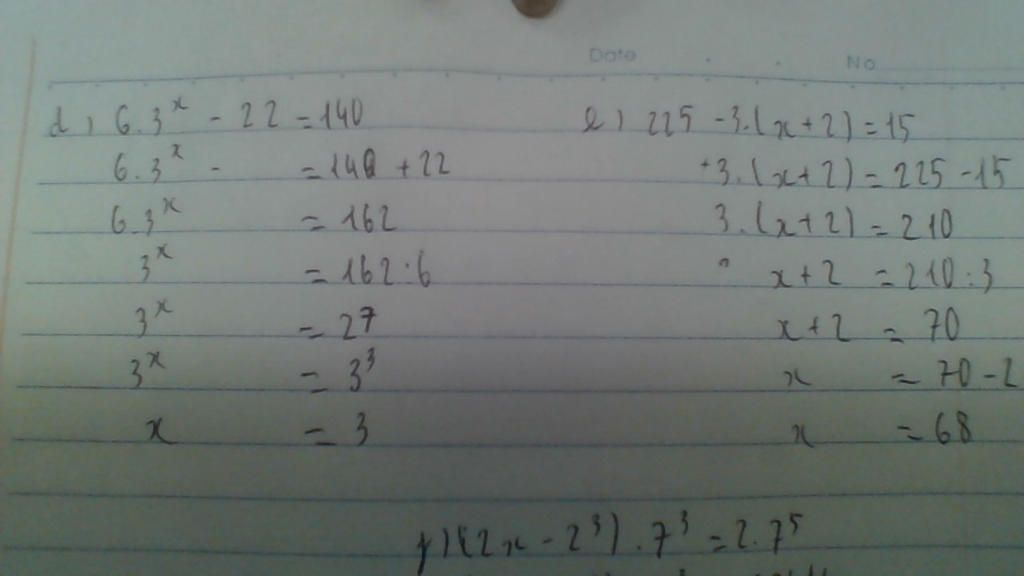 Date No
d) 6.3^x - 22 = 140
6.3^x - = 140 + 22
6.3^x = 162
3^x = 162:6
3^x = 27
3^x = 3^3
x = 3
e) 225 - 3.(x+2) = 15
3.(x+2) = 225 - 15
3.(x+2) = 210
x+2 = 210:3
x+2 = 70
x = 70-2
x = 68
f) (2x - 2^3).7^3 = 2.7^5